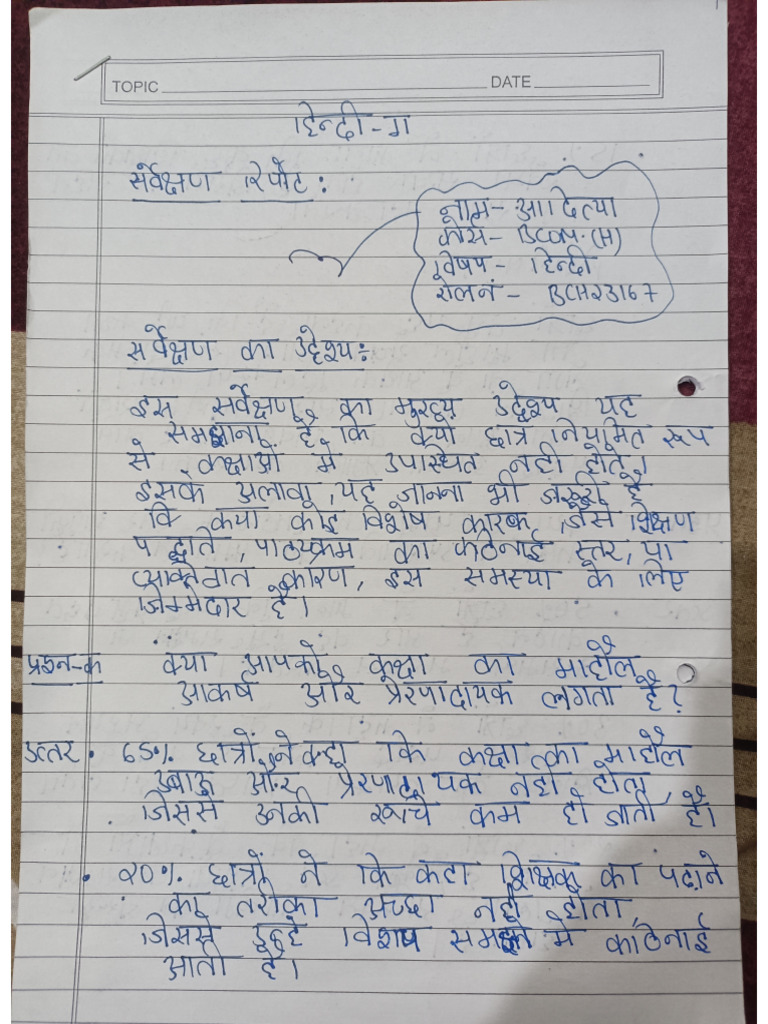 TOPIC DATE
हिन्दी-ग
सर्वेक्षण रिपोर्ट :
नाम - आदित्या
कोर्स - BCOM.(H)
विषय - हिन्दी
रोल नं - BCH23167
सर्वेक्षण का उद्देश्य :
इस सर्वेक्षण का मुख्य उद्देश्य यह
समझना है कि क्यों छात्र नियमित रूप
से कक्षाओं में उपस्थित नहीं होते।
इसके अलावा, यह जानना भी जरूरी है
कि क्या कोई विशेष कारक, जैसे शिक्षण
पद्धति, पाठ्यक्रम का कठिनाई स्तर, या
व्यक्तिगत कारण, इस समस्या के लिए
जिम्मेदार है।
प्रश्न-क क्या आपको कक्षा का माहौल
आकर्ष और प्रेरणादायक लगता है?
उत्तर • 65% छात्रों ने कहा कि कक्षा का माहौल
उबाऊ और प्रेरणादायक नहीं होता,
जिससे उनकी रूचि कम हो जाती है।
• 20% छात्रों ने कि कहा शिक्षक का पढ़ाने
का तरीका अच्छा नहीं होता,
जिससे विषय समझने में कठिनाई
आती है।